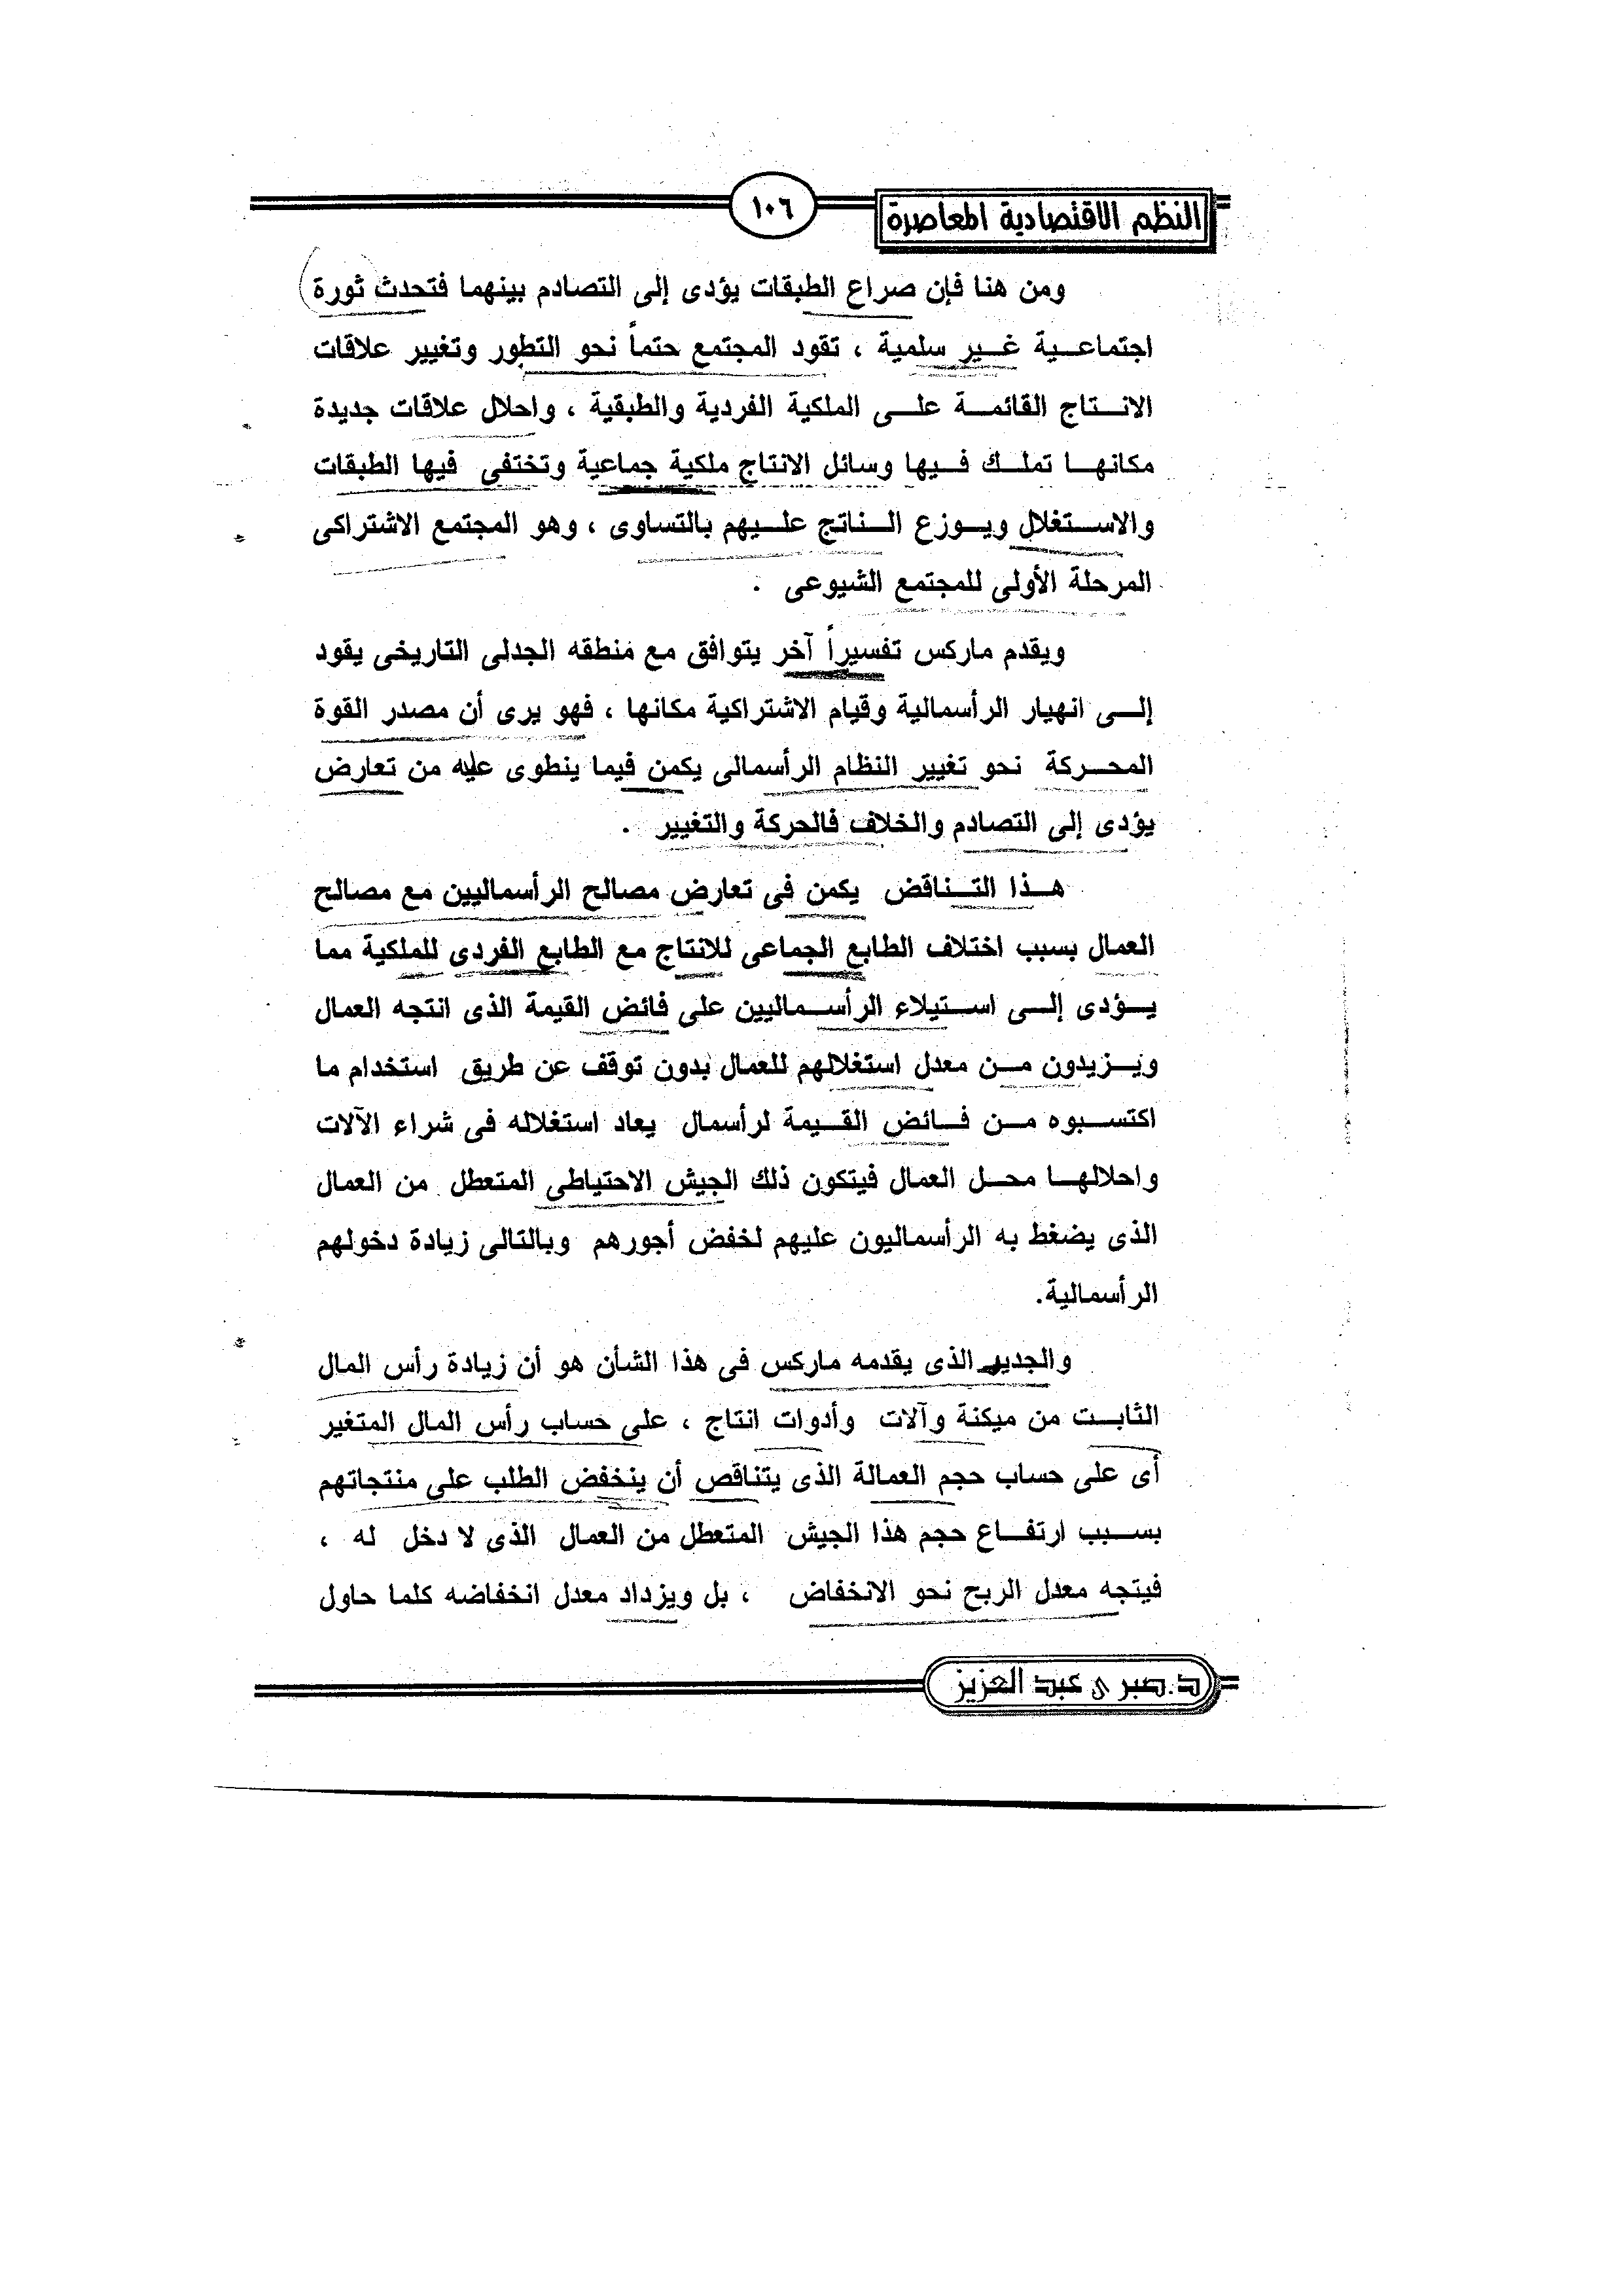 النظم الاقتصادية المعاصرة
١٠٦
ومن هنا فإن صراع الطبقات يؤدى إلى التصادم بينهما فتحدث ثورة
اجتماعية غير سلمية ، تقود المجتمع حتماً نحو التطور وتغيير علاقات
الانتاج القائمة على الملكية الفردية والطبقية ، واحلال علاقات جديدة
مكانها تملك فيها وسائل الانتاج ملكية جماعية وتختفى فيها الطبقات
والاستغلال ويوزع الناتج عليهم بالتساوى ، وهو المجتمع الاشتراكى
المرحلة الأولى للمجتمع الشيوعى .
ويقدم ماركس تفسيراً آخر يتوافق مع منطقه الجدلى التاريخى يقود
إلى انهيار الرأسمالية وقيام الاشتراكية مكانها ، فهو يرى أن مصدر القوة
المحركة نحو تغيير النظام الرأسمالى يكمن فيما ينطوى عليه من تعارض
يؤدى إلى التصادم والخلاف فالحركة والتغيير .
هذا التناقض يكمن فى تعارض مصالح الرأسماليين مع مصالح
العمال بسبب اختلاف الطابع الجماعى للانتاج مع الطابع الفردى للملكية مما
يؤدى إلى استيلاء الرأسماليين على فائض القيمة الذى انتجه العمال
ويزيدون من معدل استغلالهم للعمال بدون توقف عن طريق استخدام ما
اكتسبوه من فائض القيمة لرأسمال يعاد استغلاله فى شراء الآلات
واحلالها محل العمال فيتكون ذلك الجيش الاحتياطى المتعطل من العمال
الذى يضغط به الرأسماليون عليهم لخفض أجورهم وبالتالى زيادة دخولهم
الرأسمالية.
والجديد الذى يقدمه ماركس فى هذا الشأن هو أن زيادة رأس المال
الثابت من ميكنة وآلات وأدوات انتاج ، على حساب رأس المال المتغير
أى على حساب حجم العمالة الذى يتناقص أن ينخفض الطلب على منتجاتهم
بسبب ارتفاع حجم هذا الجيش المتعطل من العمال الذى لا دخل له ،
فيتجه معدل الربح نحو الانخفاض ، بل ويزداد معدل انخفاضه كلما حاول
د.صبرى عبد العزيز